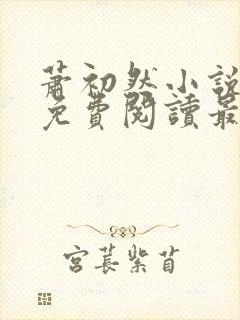 蕭初然小說
免費閱讀最
宮萇紫苜